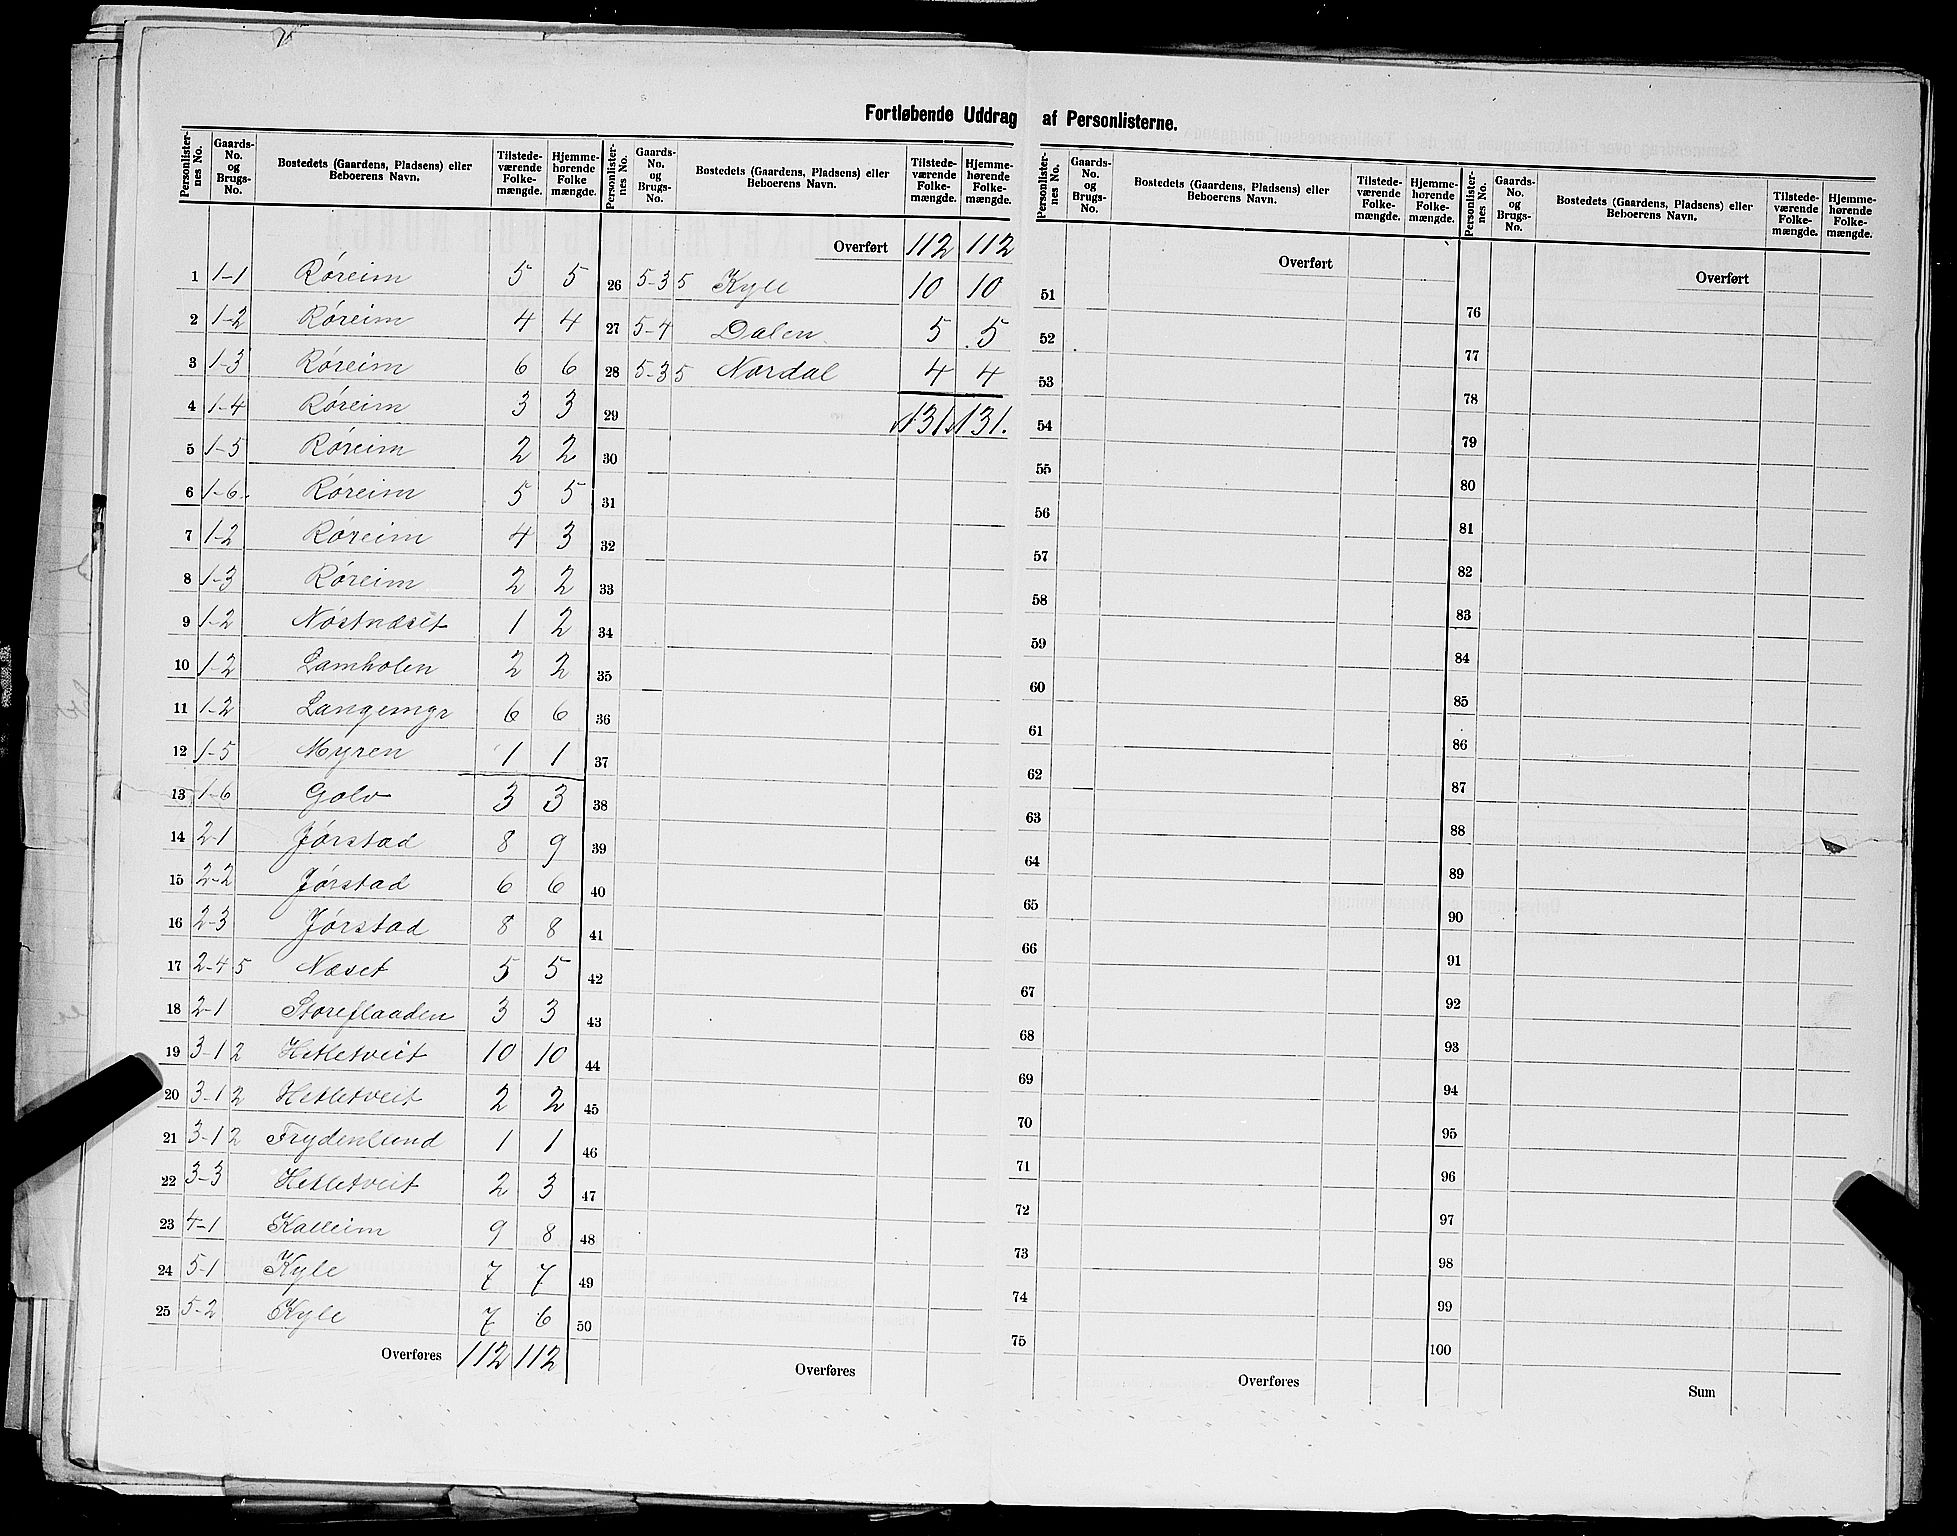 Fortløbende Uddrag af Personlisterne.
Personlister-nes No. | Gaards-No. og Brugs-No. | Bostedets (Gaardens, Pladsens) eller Beboerens Navn. | Tilstede-værende Folke-mængde. | Hjemme-hørende Folke mængde.
1 1-1 Røreim 5 5
2 1-2 Røreim 4 4
3 1-3 Røreim 6 6
4 1-4 Røreim 3 3
5 1-5 Røreim 2 2
6 1-6. Røreim 5 5
7 1-2 Røreim 4 3
8 1-3 Røreim 2 2
9 1-2 Nøstnæset 1 2
10 1-2 Lamholen 2 2
11 1-2 Langemgr 6 6
12 1-5 Myren 1 1
13 1-6 Golv 3 3
14 2-1 Jørstad 8 9
15 2-2 Jørstad 6 6
16 2-3 Jørstad 8 8
17 2-4 5 Næset 5 5
18 2-1 Storeflaaden 3 3
19 3-1 2 Hetletveit 10 10
20 3-1 2 Hetletveit 2 2
21 3-1 2 Frydenlund 1 1
22 3-3 Hetletveit 2 3
23 4-1 Kalleim 9 8
24 5-1 Kyle 7 7
25 5-2 Kyle 7 6
Overføres 112 112
Personlister-nes No. | Gaards-No. og Brugs-No. | Bostedets (Gaardens, Pladsens) eller Beboerens Navn. | Tilstede-værende Folke-mængde. | Hjemme-hørende Folke-mængde.
Overført 112 112
26 5-3 5 Kyle 10 10
27 5-4 Dalen 5 5
28 5-3 5 Nordal 4 4
29 131. 131.
30
31
32
33
34
35
36
37
38
39
40
41
42
43
44
45
46
47
48
49
50
Overføres
Personlister-nes No. | Gaards-No. og Brugs-No. | Bostedets (Gaardens, Pladsens) eller Beboerens Navn. | Tilstede-værende Folke-mængde. | Hjemme-hørende Folke-mængde.
Overført
51
52
53
54
55
56
57
58
59
60
61
62
63
64
65
66
67
68
69
70
71
72
73
74
75
Overføres
Personlister-nes No. | Gaards-No. og Brugs-No. | Bostedets (Gaardens, Pladsens) eller Beboerens Navn. | Tilstede-værende Folke-mængde. | Hjemme-hørende Folke-mængde.
Overført
76
77
78
79
80
81
82
83
84
85
86
87
88
89
90
91
92
93
94
95
96
97
98
99
100
Sum